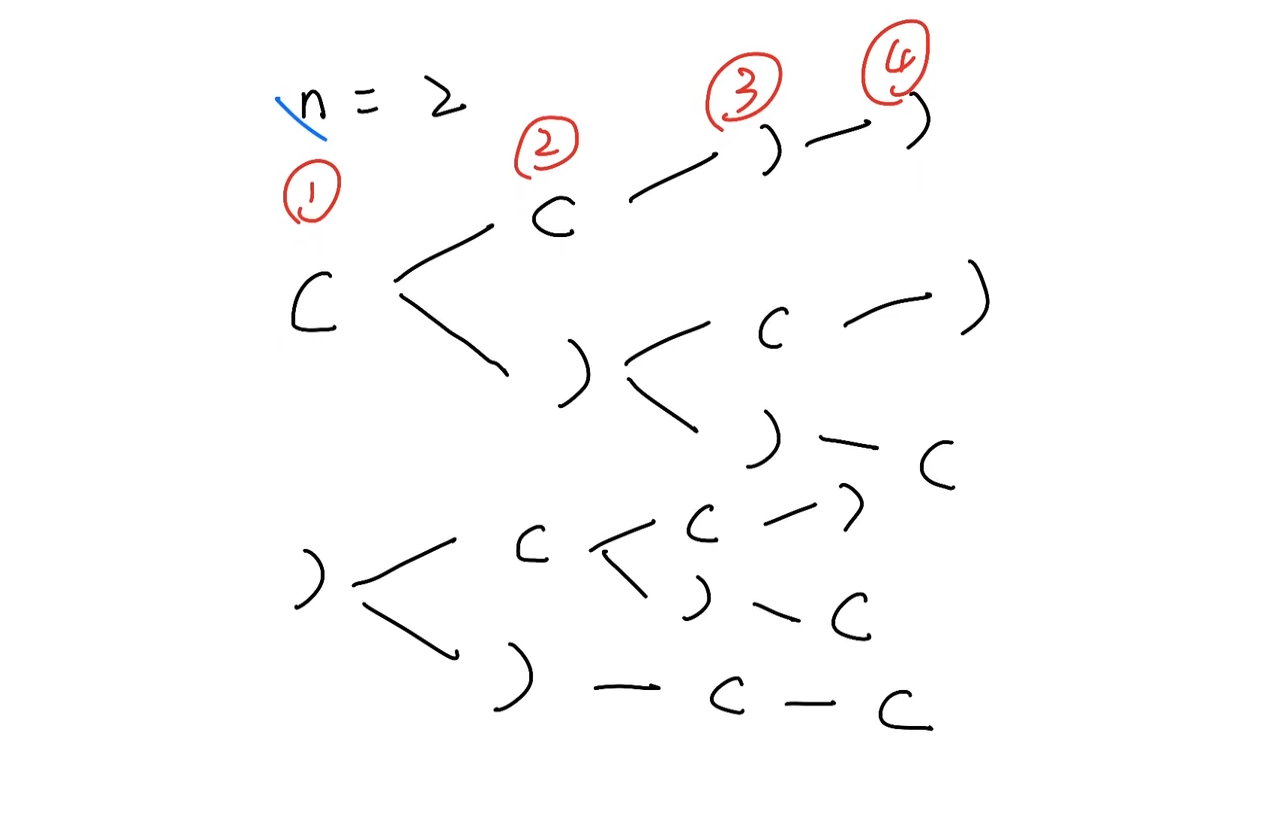 n = 2
① ② ③ ④
( ( ) )
( ) ( )
( ) ) (
) ( ( )
) ( ) (
) ) ( (